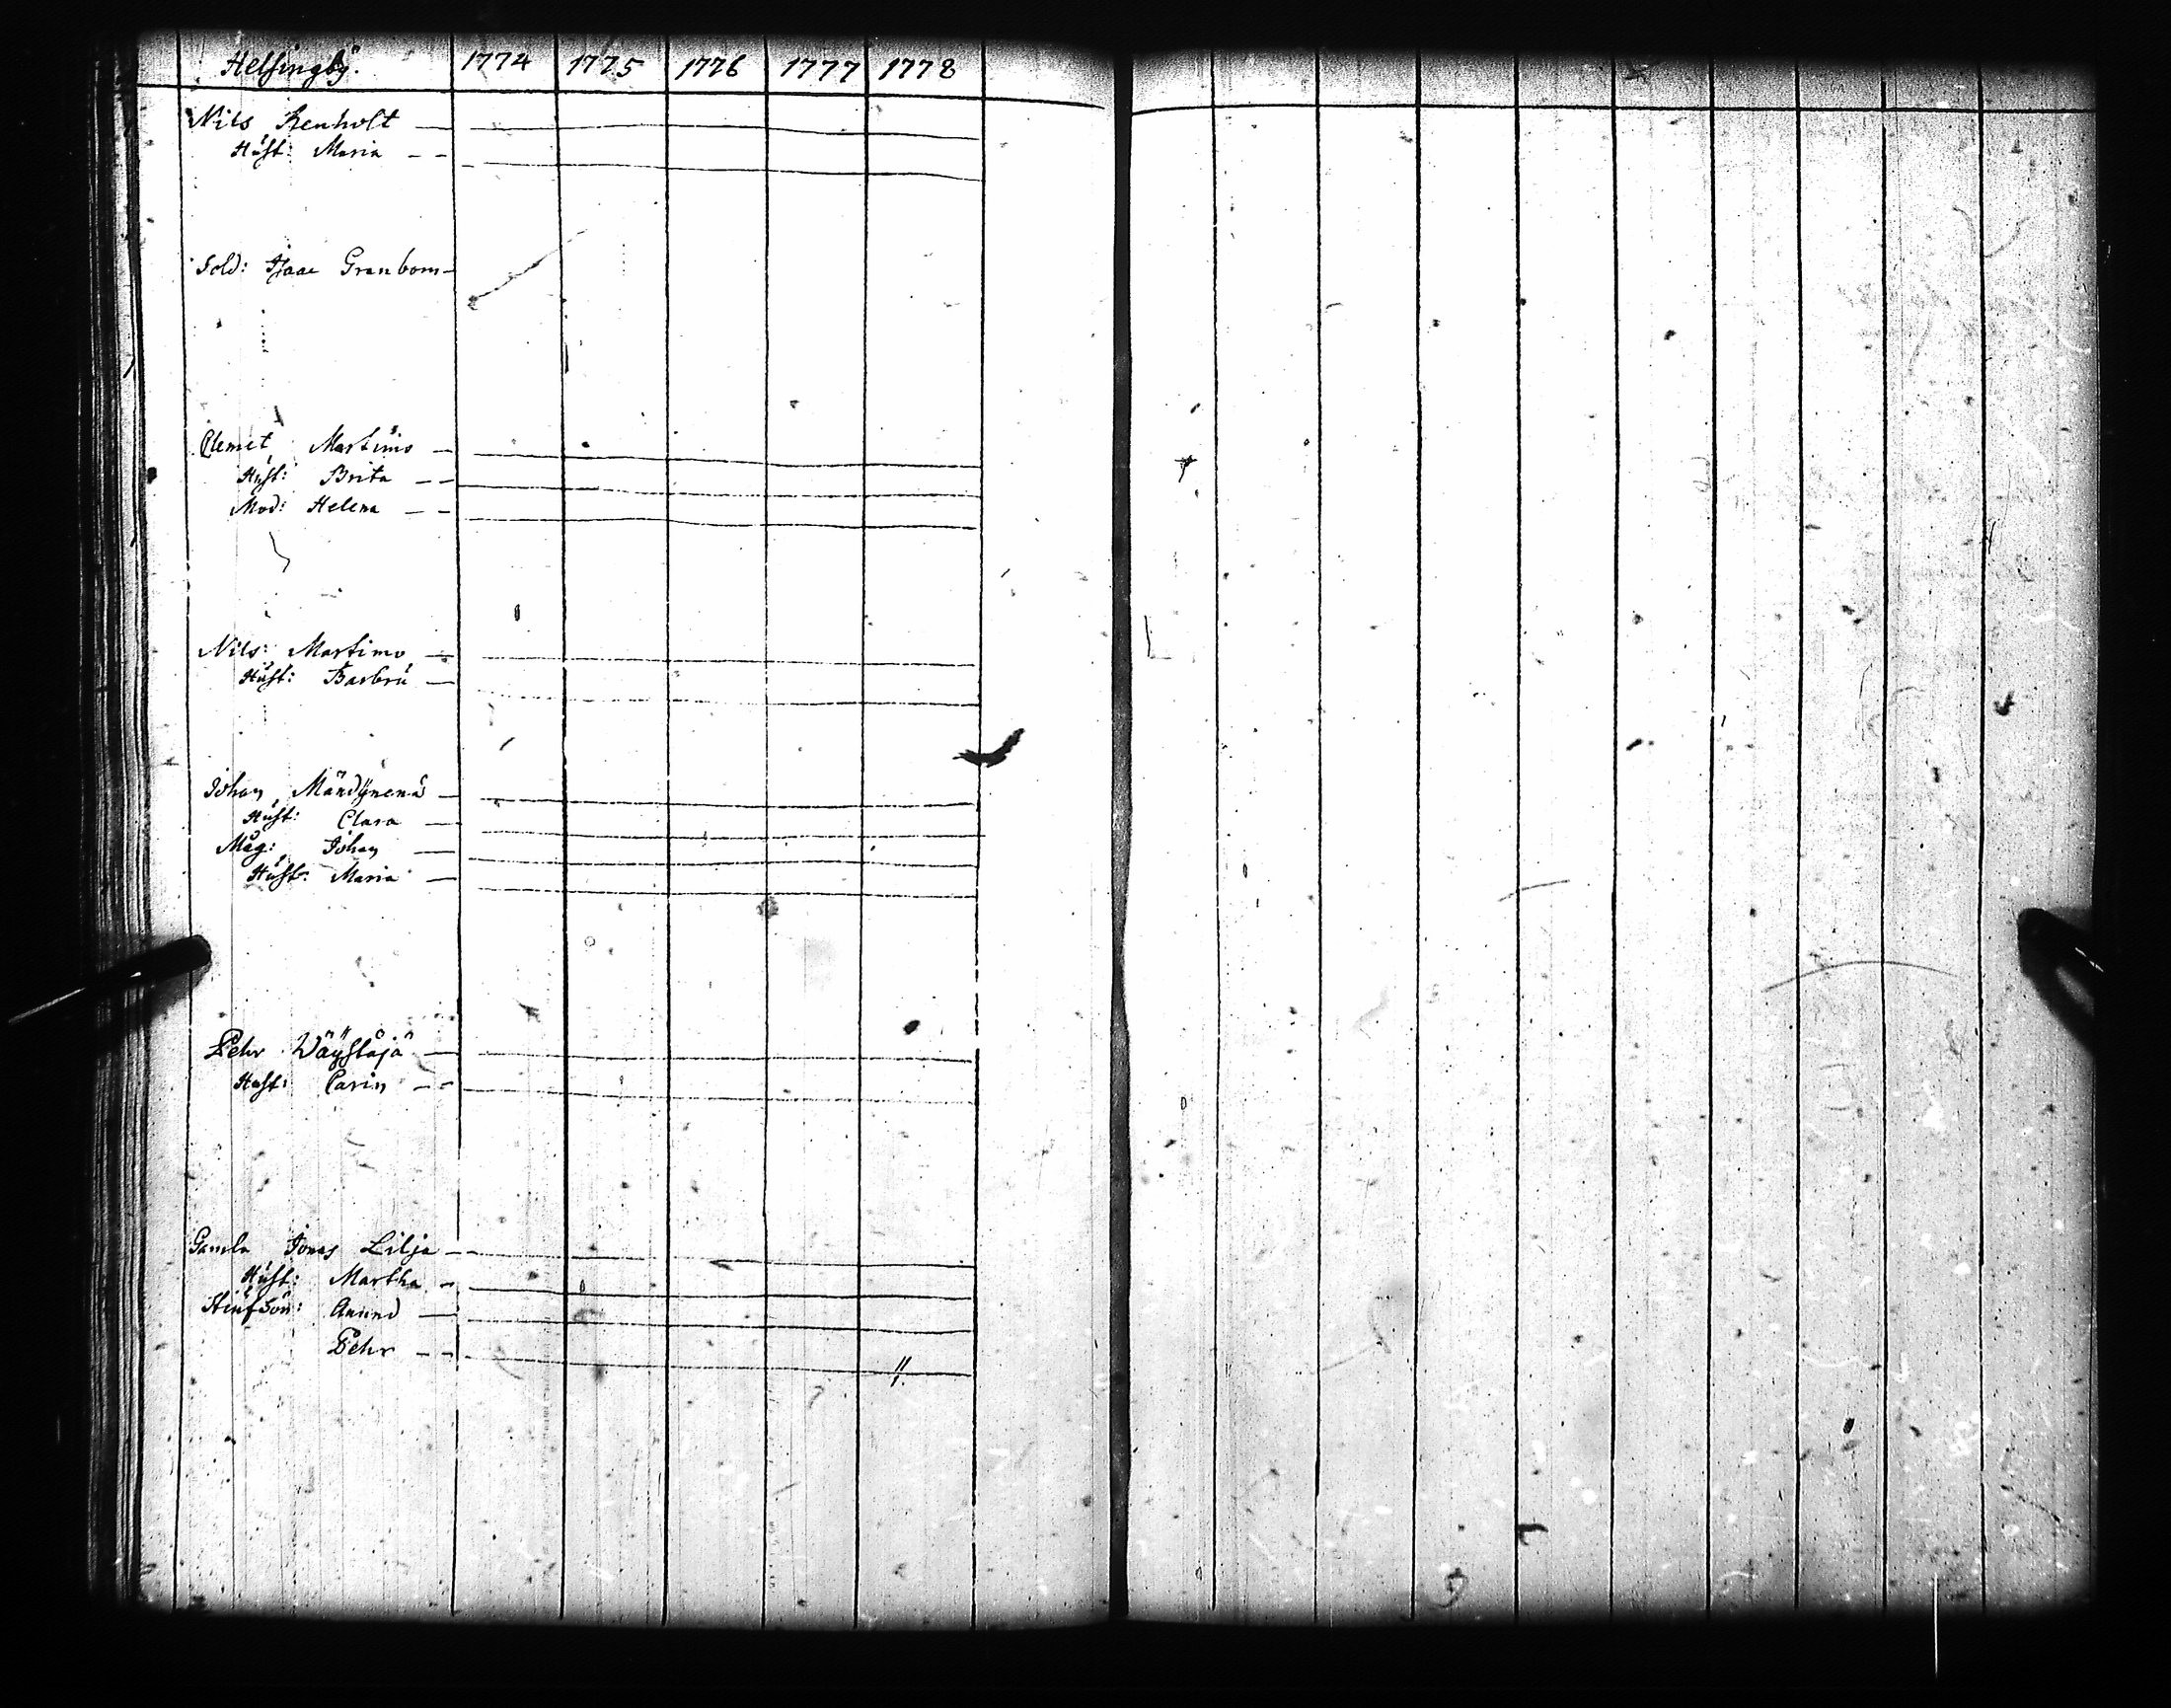 Helsingby. 1774 1775 1776 1777 1778
Nils Renholt
Hust: Maria
Sold: Isaac Granbom
Clemet Martimo
Hust: Brita
Mod: Helena
Nils: Martimo
Hust: Barbru
Johan
Hust: Clara
Måg: Johan
Hust: Maria
Pehr Wäystäjä
Hust: Carin
Gamla Jonas Lilja
Hust: Martha
Stiufson: Anund
Pehr